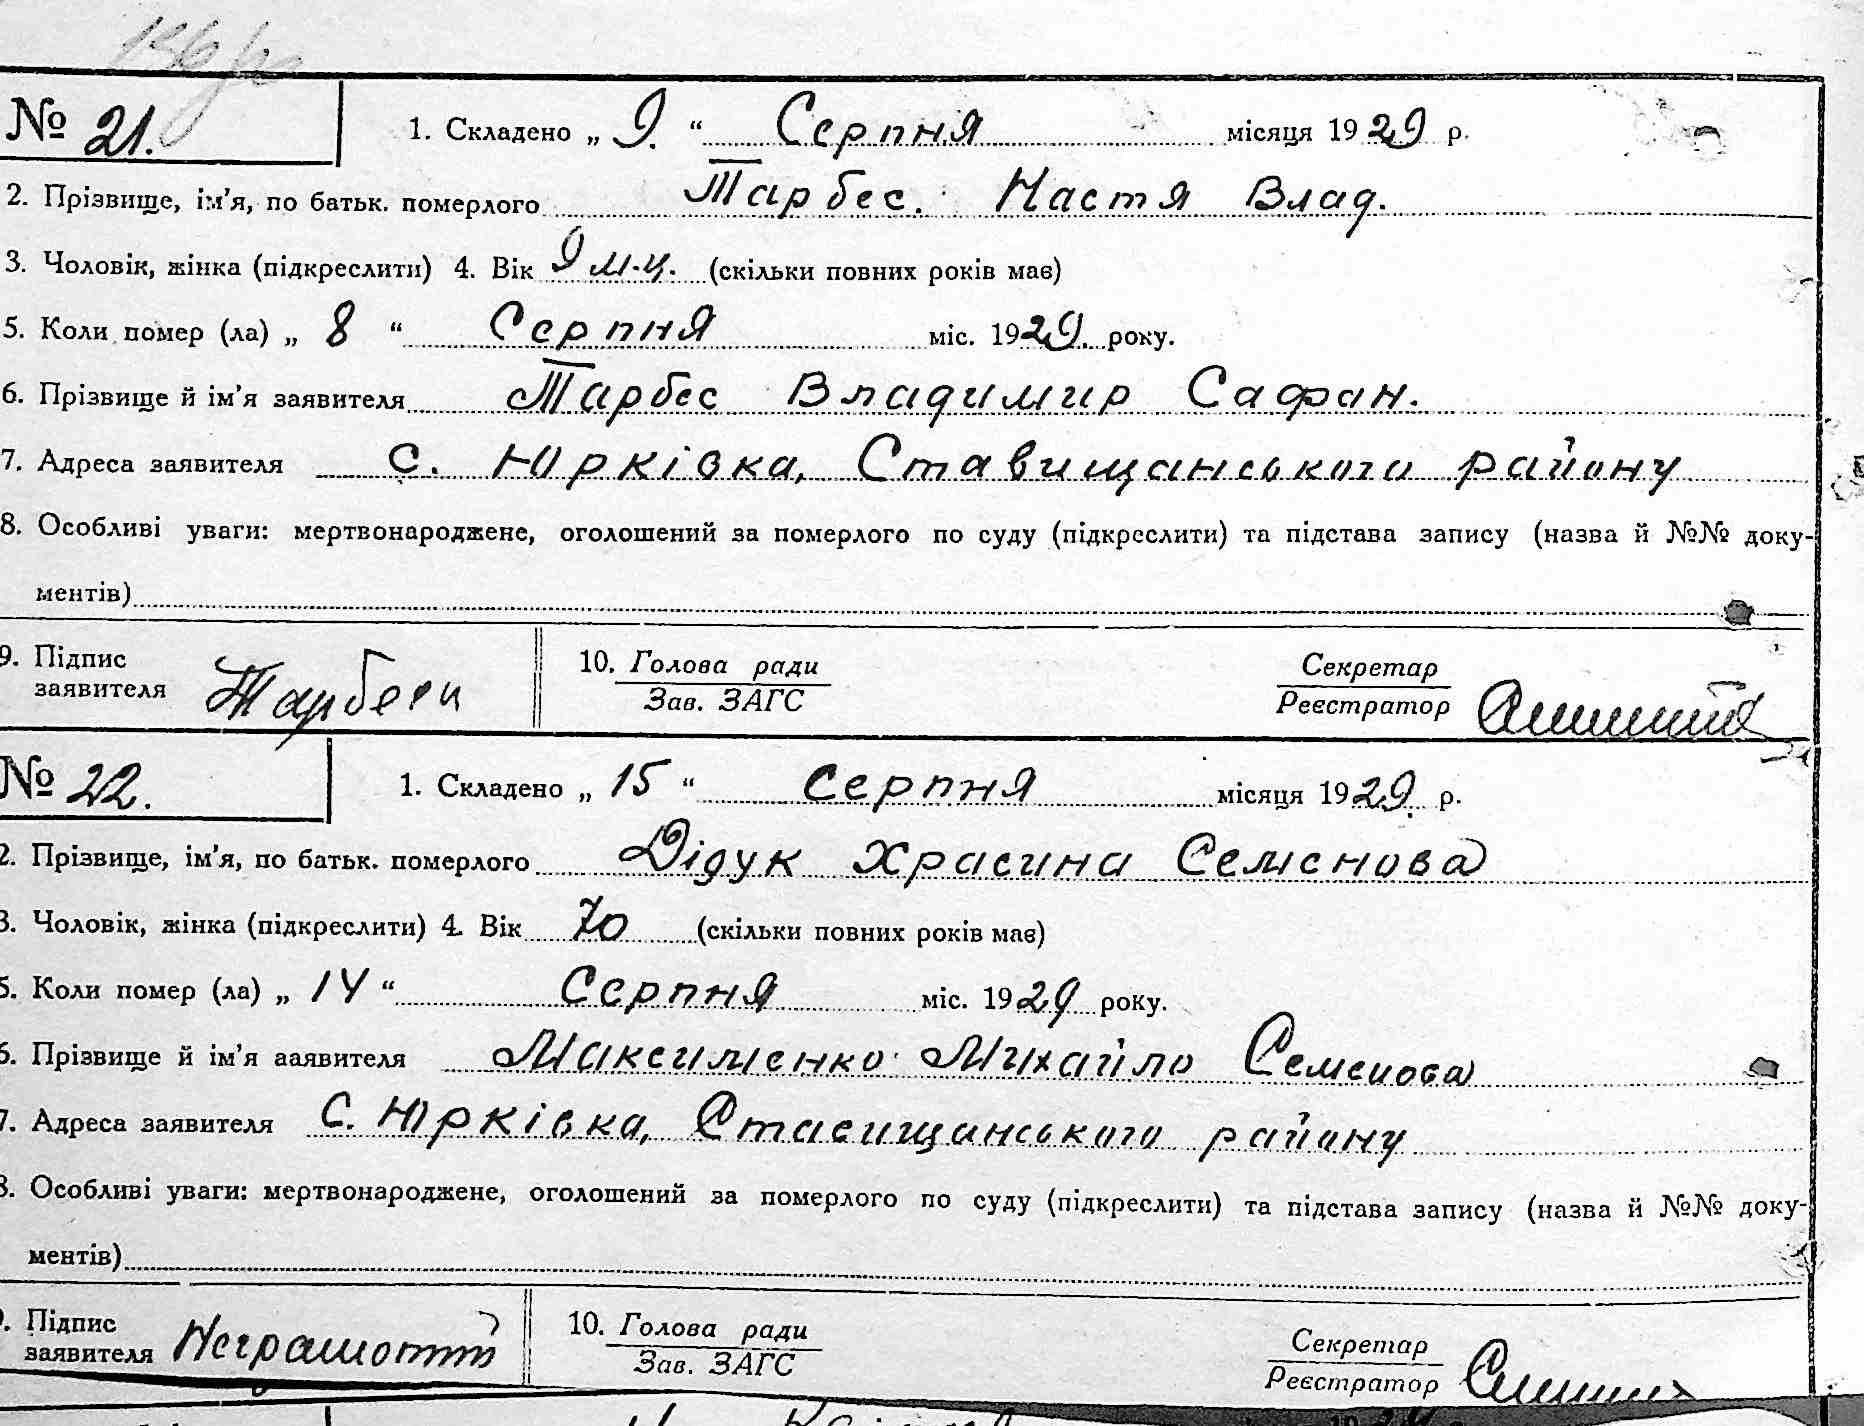 № 21.
1. Складено „ 9. “ Серпня місяця 1929 р.
2. Прізвище, ім'я, по батьк. померлого Тарбес. Настя Влад.
3. Чоловік, жінка (підкреслити) 4. Вік 9 м-ц. (скільки повних років має)
5. Коли помер (ла) „ 8 “ Серпня міс. 1929. року.
6. Прізвище й ім'я заявителя Тарбес Владимир Сафон.
7. Адреса заявителя с. Юрківка, Ставищанського району
8. Особливі уваги: мертвонароджене, оголошений за померлого по суду (підкреслити) та підстава запису (назва й №№ доку-
ментів)
9. Підпис заявителя
10. Голова ради
Зав. ЗАГС
Секретар
Реєстратор
№ 22.
1. Складено „ 15 “ Серпня місяця 1929. р.
2. Прізвище, ім'я, по батьк. померлого Дідук Храсина Семенова
3. Чоловік, жінка (підкреслити) 4. Вік 70 (скільки повних років має)
5. Коли помер (ла) „ 14 “ Серпня міс. 1929 року.
6. Прізвище й ім'я заявителя Максименко Михайло Семенова
7. Адреса заявителя С. Юрківка, Ставищанського району
8. Особливі уваги: мертвонароджене, оголошений за померлого по суду (підкреслити) та підстава запису (назва й №№ доку-
ментів)
9. Підпис заявителя Неграмотний
10. Голова ради
Зав. ЗАГС
Секретар
Реєстратор